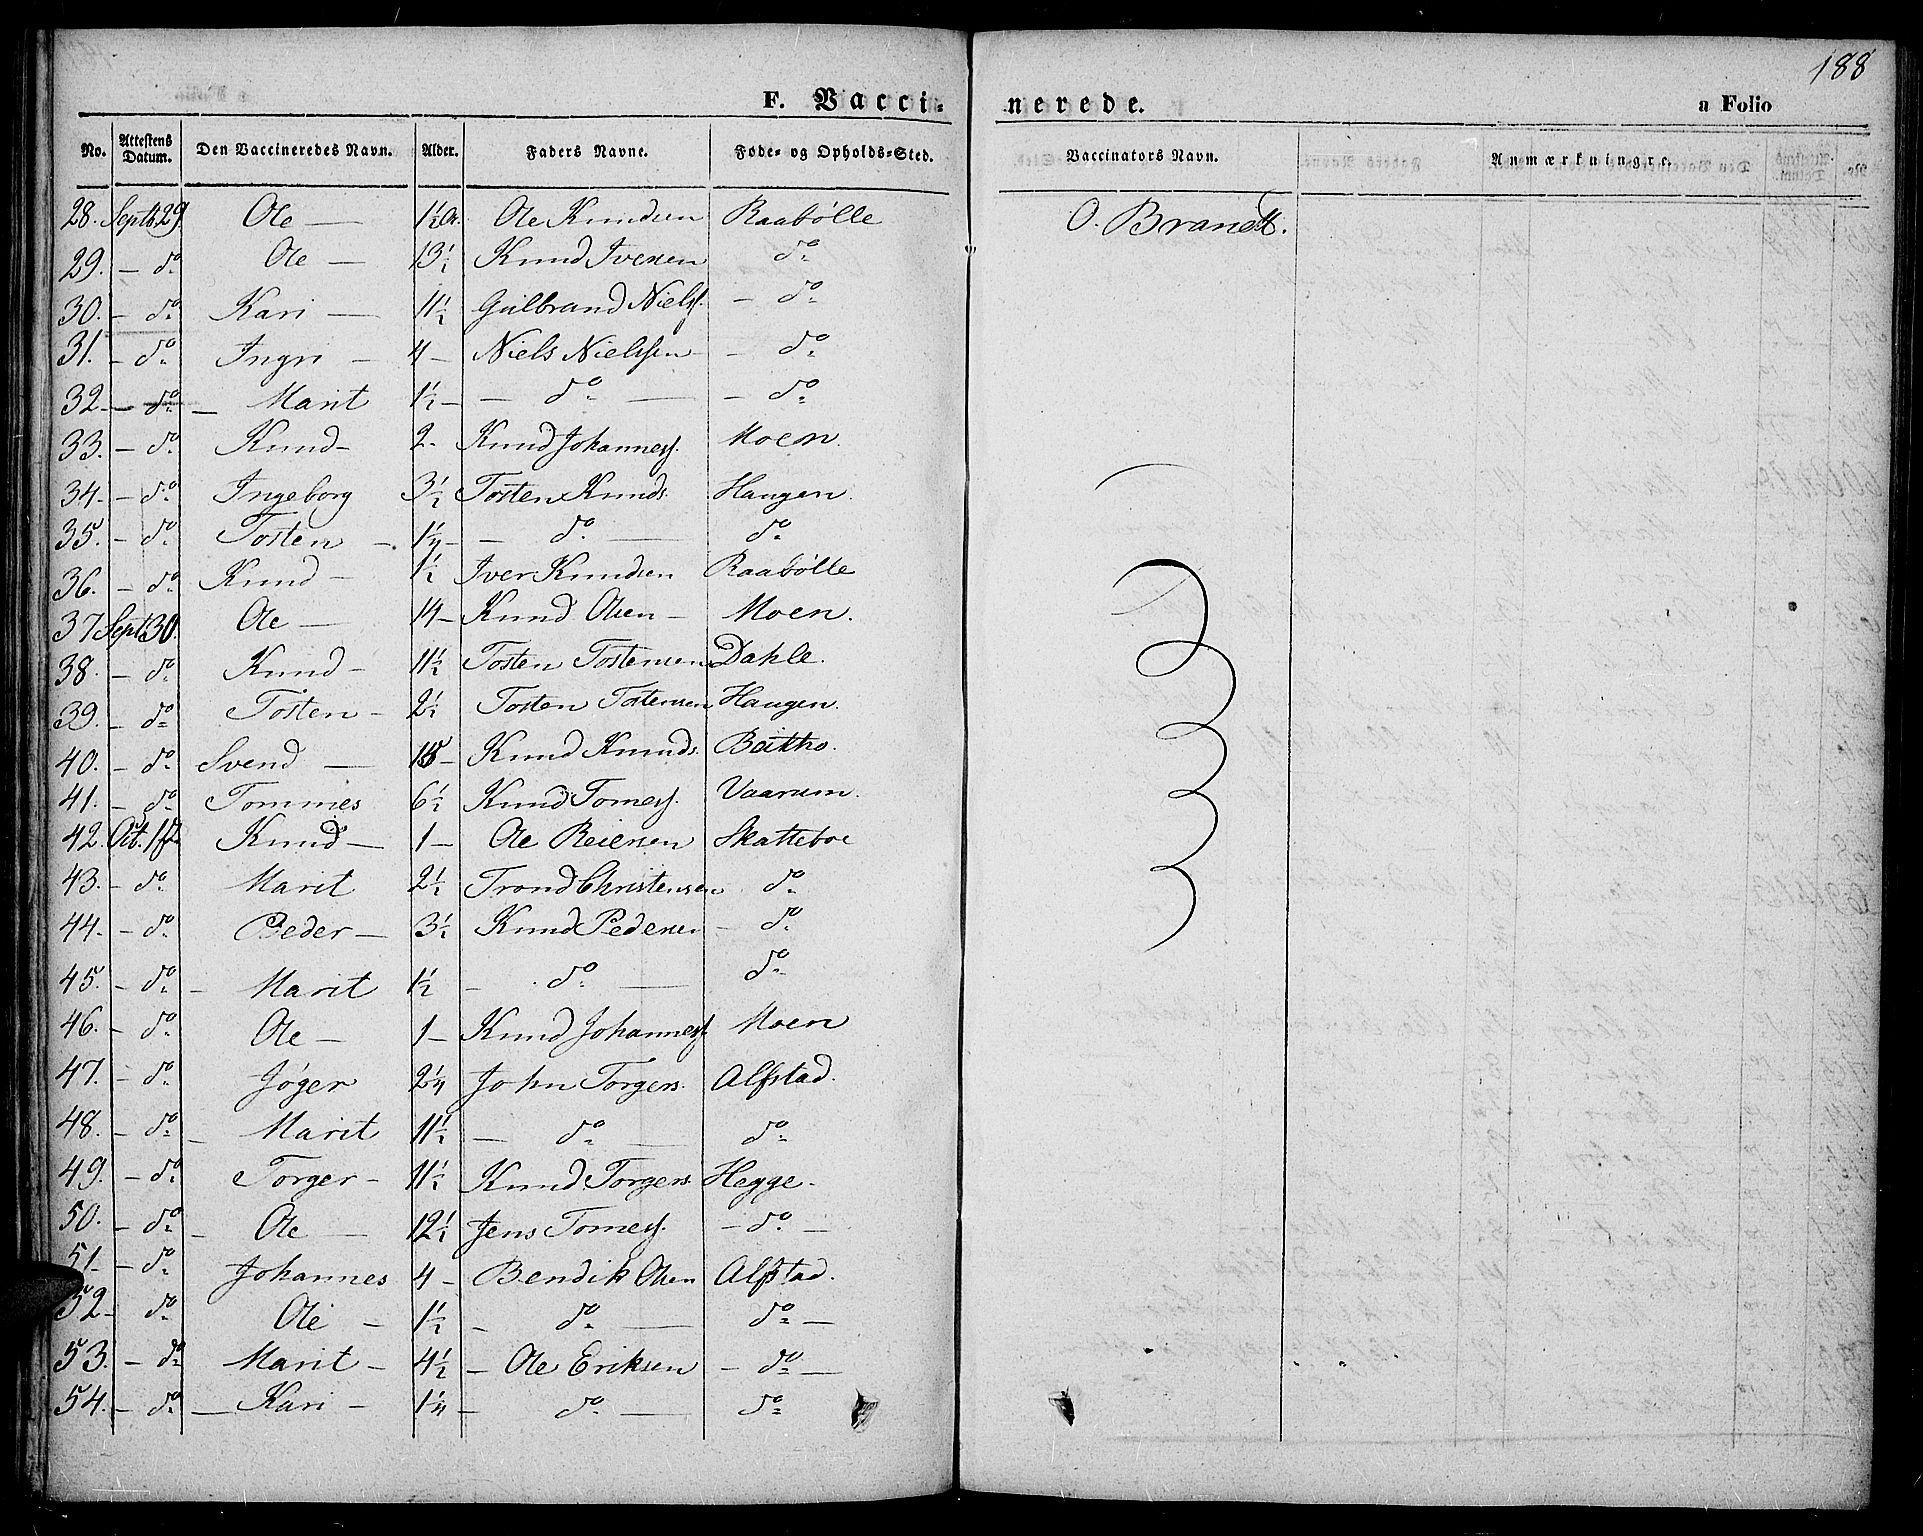 188
F. Vacci- nerede. a Folio
No. Attestens Datum. Den Vaccineredes Navn. Alder. Faders Navne. Føde- og Opholds-Sted. Vaccinators Navn. Anmærkningre.
28. Septb 29 Ole — 1½ Ole Knudsen Raabølle O. Brandt.
29. — do Ole — 13½ Knud Iversen do
30. — do Kari — 11½ Gulbrand Nielss. — do
31. — do Ingri — 4 — Niels Nielssen — do
32 — do — Marit 1½ — — do — — do
33. — do Knud — 2. Knud Johanness. Moen.
34 — do Ingeborg 3½ Tosten Knuds. Haugen.
35. — do Tosten — 1¼ — — do — do
36. — do Knud — 1½ Iver Knudsen Raabølle
37 Septb 30. Ole — 14 — Knud Olsen — Moen.
38. — do Knud — 11½ Tosten Tostensen Dahle.
39. — do Tosten — 2½ Tosten Tostensen Haugen.
40. — do Svend — 15 — Knud Knuds. Beitho.
41. — do Tommes 6½ Knud Tomess. Vaarum.
42. Oct. 1ste Knud — 1 — Ole Reiersen Skatteboe
43. — do Marit 2½ Trond Christensen do
44. — do Peder — 3½ Knud Pedersen — do
45. — do — Marit 1½ — do — do
46. — do Ole — 1 — Knud Johanness. Moen
47. — do Jøger 2¼ John Torgers. Alfstad.
48. — do — Marit 11½ — do — do
49. — do Torger — 11½ Knud Torgers. Hegge.
50. — do — Ole — 12½ Jens Tomess. — do —
51 — do Johannes 4 — Bendik Olsen Alfstad.
52 — do Ole — 1½ — do — do —
53. — do Marit — 4½ — Ole Eriksen — do —
54. — do — Kari — 1¼ — do — do